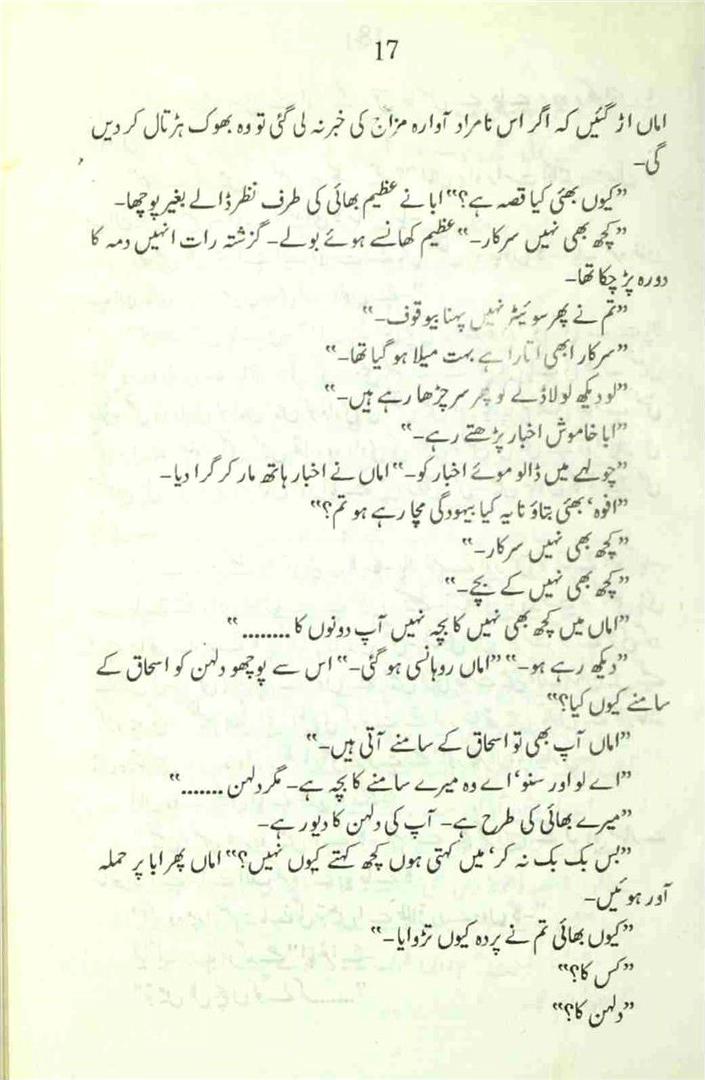 17
اماں اڑ گئیں کہ اگر اس نامراد آوارہ مزاج کی خبر نہ لی گئی تو وہ بھوک ہڑتال کر دیں
گی۔
”کیوں بھئی کیا قصہ ہے؟“ ابا نے عظیم بھائی کی طرف نظر ڈالے بغیر پوچھا۔
”کچھ بھی نہیں سرکار۔“ عظیم کھانستے ہوئے بولے۔ گزشتہ رات انہیں دمہ کا
دورہ پڑ چکا تھا۔
”تم نے پھر سوئیٹر نہیں پہنا بیوقوف۔“
”سرکار ابھی اتارا ہے بہت میلا ہو گیا تھا۔“
”لو دیکھ لو لاڈلے کو پھر سر چڑھا رہے ہیں۔“
”ابا خاموش اخبار پڑھتے رہے۔“
”چولہے میں ڈالو موئے اخبار کو۔“ اماں نے اخبار ہاتھ مار کر گرا دیا۔
”افوہ‘ بھئی بتاؤ نا یہ کیا بیہودگی مچا رہے ہو تم؟“
”کچھ بھی نہیں سرکار۔“
”کچھ بھی نہیں کے بچے۔“
”اماں میں کچھ بھی نہیں کا بچہ نہیں آپ دونوں کا ........“
”دیکھ رہے ہو۔“ ”اماں روہانسی ہو گئی۔“ اس سے پوچھو دلہن کو اسحاق کے
سامنے کیوں کیا؟“
”اماں آپ بھی تو اسحاق کے سامنے آتی ہیں۔“
”اے لو اور سنو‘ اے وہ میرے سامنے کا بچہ ہے۔ مگر دلہن .......“
”میرے بھائی کی طرح ہے۔ آپ کی دلہن کا دیور ہے۔
”بس بک بک نہ کر‘ میں کہتی ہوں کچھ کہتے کیوں نہیں؟“ اماں پھر ابا پر حملہ
آور ہوئیں۔
”کیوں بھائی تم نے پردہ کیوں تڑوایا۔“
”کس کا؟“
”دلہن کا؟“